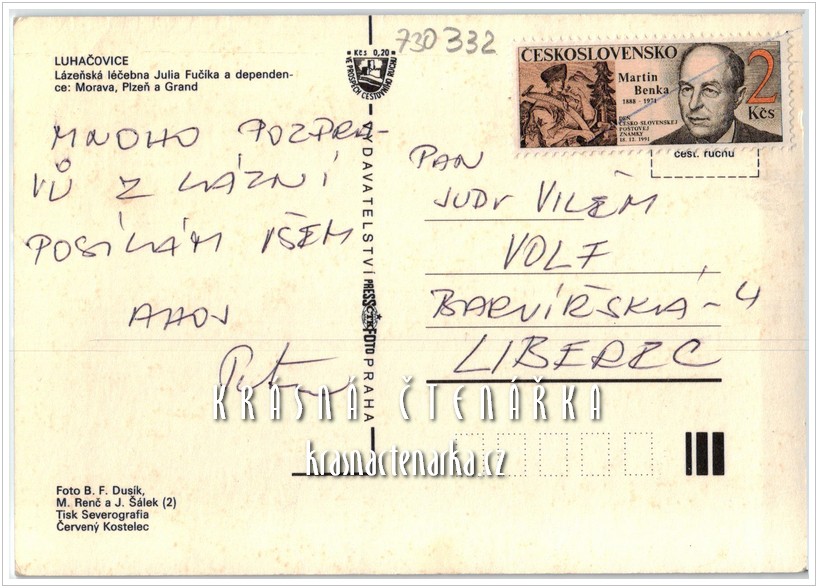 730 332
LUHAČOVICE
Lázeňská léčebna Julia Fučíka a dependen-
ce: Morava, Plzeň a Grand
MNOHO POZDRA-
VŮ Z LÁZNÍ
POSÍLÁM VŠEM
AHOJ
Kčs 0,20
VE PROSPĚCH CESTOVNÍHO RUCHU
VYDAVATELSTVÍ PRESSFOTO PRAHA
ČESKOSLOVENSKO
Martin
Benka
1888 - 1971
DEN
ČESKO SLOVENSKEJ
POŠTOVEJ
ZNÁMKY
18. 12. 1991
2
Kčs
cest. ruchu
PAN
JUDr VILÉM
VOLF
BARVÍŘSKÁ - 4
LIBEREC
KRÁSNÁ ČTENÁŘKA
krasnactenarka.cz
Foto B. F. Dusík,
M. Renč a J. Šálek (2)
Tisk Severografia
Červený Kostelec